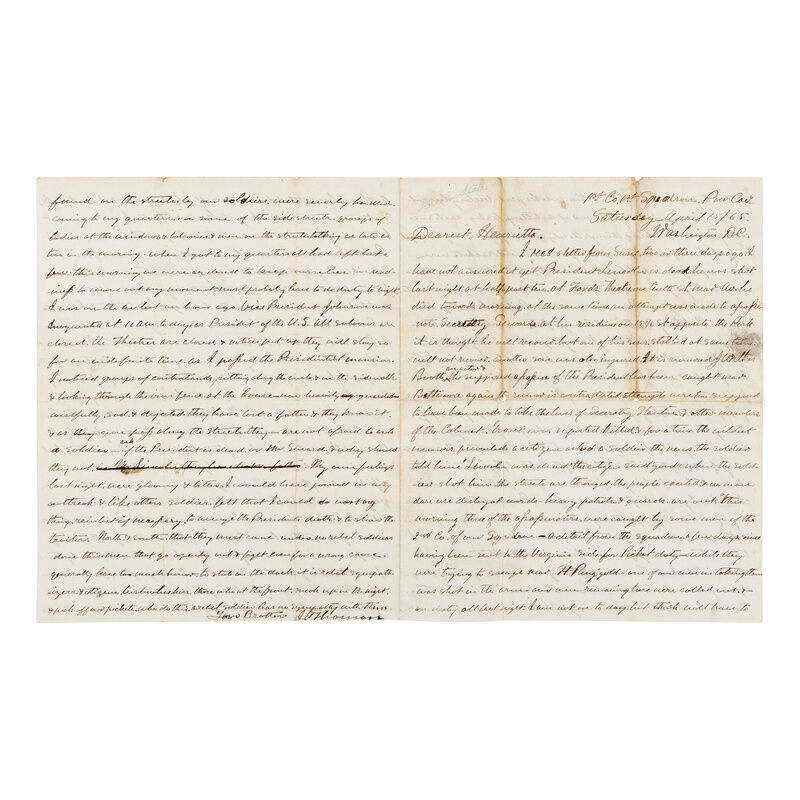 1st Co, 1st Squadron, Prov Cav
Saturday April 15/65.
Washington D.C.
Dearest Henrietta.
I rec'd a letter from Susie two or three days ago. I
have not answered it yet President Lincoln is dead he was shot
last night at half past ten at Fords Theatre on tenth St near Ave he
died towards morning, at the same time an attempt was made to assassi
nate Secretary Seward at his residence on 15½ St opposite the Park
it is thought he will recover but one of his sons, stabbed at same time
will not recover, another son was also injured. It is rumored J Wilk
Booth, the supposed assassin of the President has been caught near
arrested &
Baltimore again the rumor is contradicted attempts were too supposed
to have been made to take the lives of Secretary Stanton & other members
of the Cabinet. Grant was reported killed & for a time the wildest
rumors prevailed a citizen asked a soldier the news, the soldier
told him "Lincoln was dead" the citizen said "good" when the sold-
ier shot him. the streets are thronged the people excited & no man
dare use disloyal words heavy patrols & guards are out. This
morning three of the assassinators, were caught by some men of the
2nd Co. of our Squadron - a detail from the squadron a few days since
having been sent to the Virginia side for Picket duty - while they
were trying to escape over. H Ringgold - one of our men in taking them
was shot in the arm our men remaining here were called out &
on duty all last night. I am not on to day but think will have to
found on the streets by our soldiers, were severely handled
coming to my quarters on some of the side streets groups of
ladies at the windows & balconies & men on the streets talking as late as
two in the morning. when I got to my quarters all had left but a
few. this morning we were ordered to keep ourselves in read-
iness to move out any moment. most probably have to do duty to night
I was on the Ave but an hour ago. Vice President Johnson was
Inaugurated at 11 a.m. to day as President of the U.S. All saloons are
closed. the Theatres are closed & notice put up they will stay so
for an indefinite time. as I passed the Presidential mansion.
I noticed groups of contrabands, sitting along the curb & on the sidewalk
& looking through the iron fence at the house now heavily guarded
wistfully, sad, & dejected, they have lost a father & they know it.
& as they some pass along the streets they are not afraid to ask
a soldier ask if the President is dead, or Mr Seward, & why should
they not. My own feelings
last night, were gloomy & bitter. I would have joined in any
outbreak & like other soldiers felt that I could do most any
thing, reinlist if necessary, to avenge the Presidents death & to show the
traitors North & South, that they must come under. no rebel soldiers
done this men that go openly out & fight even for a wrong cause.
generally have too much honor to stab in the dark. it is rebel sympath
izers & citizens, bushwhackers, those who at the front. sneak up in the night.
& pick off our pickets, who do this. a rebel soldier has no sympathy with them.
Your Brother